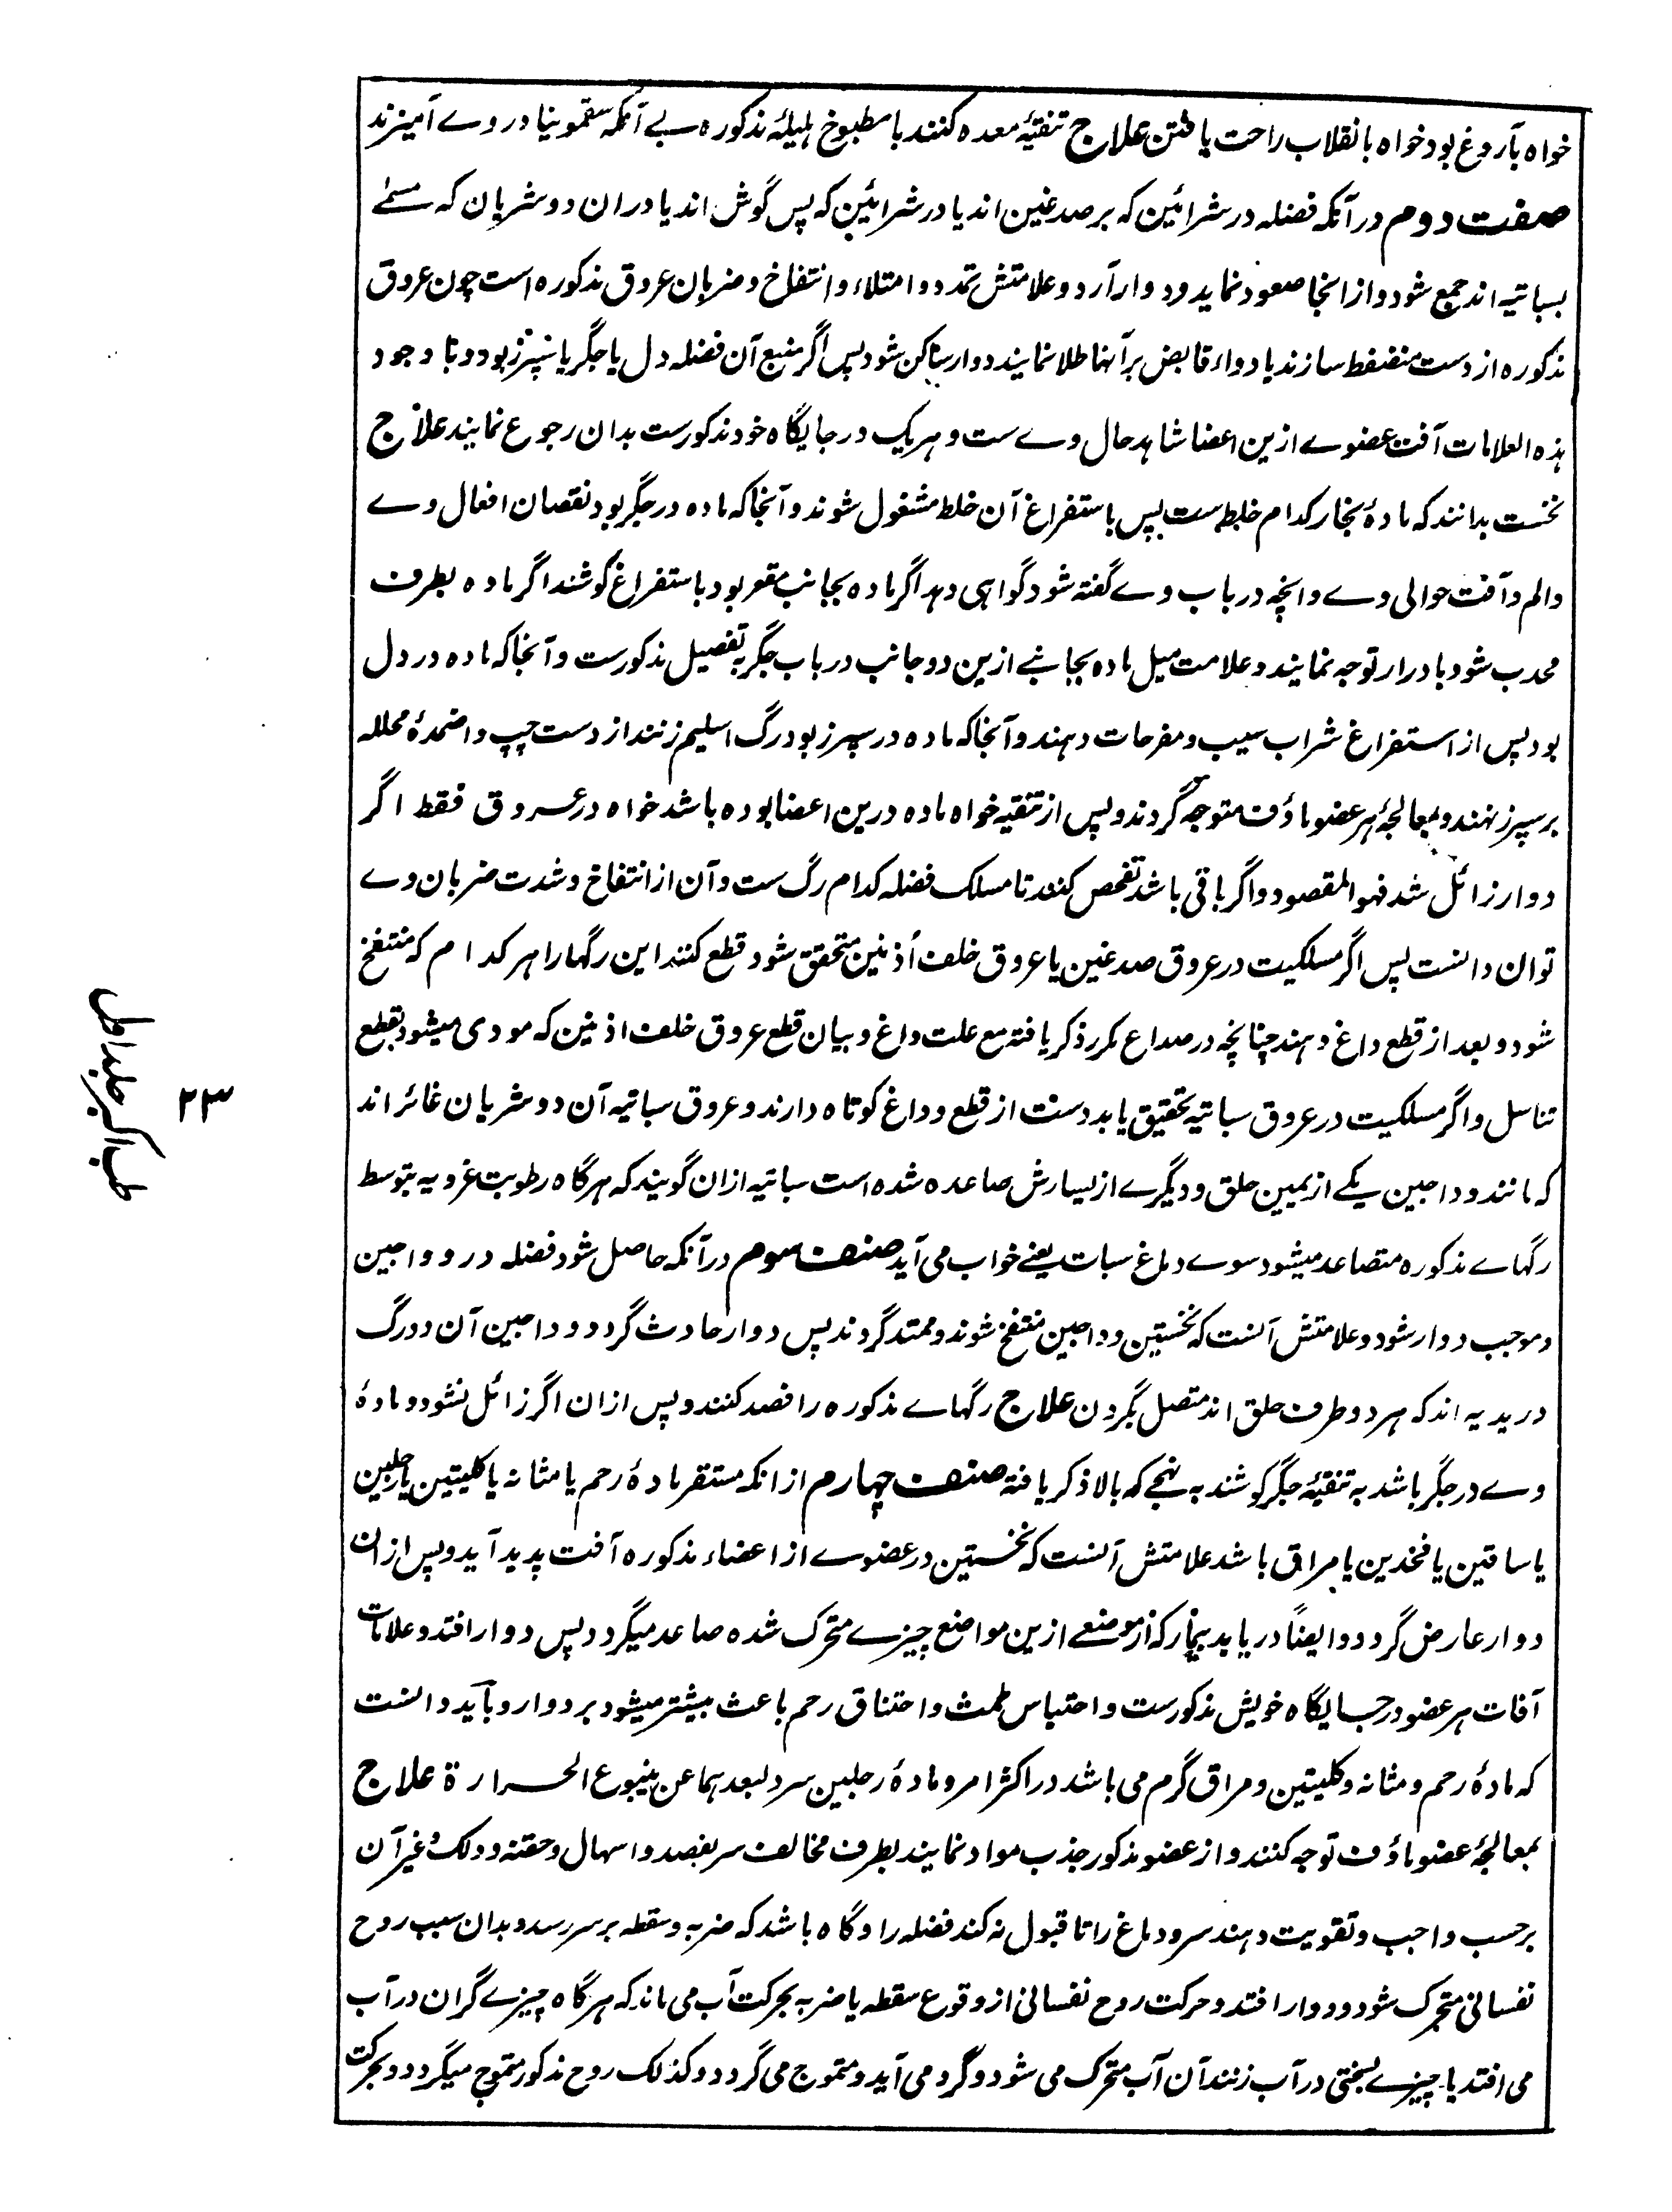 خواه بآروغ بود خواه بانقلاب راحت یافتن علاج تنقیهٔ معده کنند با مطبوخ ہلیلهٔ مذکوره بے آنکه سقمونیا در وے آمیزند
صنف دوم در آنکه فضله در شرائین که بر صدغین اند یا در شرائین که پس گوش اند یا در ان دو شریان که مسمے
بسباتیه اند جمع شود و از انجا صعود نماید و دوار آرد و علامتش تمدد و امتلاء و انتفاخ و ضربان عروق مذکوره است چون عروق
مذکوره از دست منضغط سازند یا دواء قابض بر آنها طلا نمایند دوار ساکن شود پس اگر منبع آن فضله دل یا جگر یا سپرز بود و با وجود
ہذه العلامات آفت عضوے ازین اعضا شاہد حال وے ست و ہریک در جایگاه خود مذکورست بدان رجوع نمایند علاج
نخست بدانند که مادهٔ بخار کدام خلط ست پس باستفراغ آن خلط مشغول شوند و آنجا که ماده در جگر بود نقصان افعال وے
و الم و آفت حوالی وے و انچه در باب وے گفته شود گواہی دہد اگر ماده بجانب مقعر بود باستفراغ کوشند اگر ماده بطرف
محدب شود بادرار توجه نمایند و علامت میل ماده بجانبے ازین دو جانب در باب جگر بتفصیل مذکورست و آنجا که ماده در دل
بود پس از استفراغ شراب سیب و مفرحات دہند و آنجا که ماده در سپرز بود رگ اسلیم زنند از دست چپ و اضمدهٔ محلله
بر سپرز نہند و بمعالجهٔ ہر عضو ماؤف متوجه گردند و پس از تنقیه خواه ماده درین اعضا بوده باشد خواه در عروق فقط اگر
دوار زائل شد فہو المقصود و اگر باقی باشد تفحص کنند تا مسلک فضله کدام رگ ست و آن از انتفاخ و شدت ضربان وے
توان دانست پس اگر مسلکیت در عروق صدغین یا عروق خلف اُذنین متحقق شود قطع کنند این رگہا را ہر کدام که منتفخ
شود و بعد از قطع داغ دہند چنانچه در صداع مکرر ذکر یافته مع علت داغ و بیان قطع عروق خلف اذنین که مودی میشود بقطع
تناسل و اگر مسلکیت در عروق سباتیه تحقیق یابد دست از قطع و داغ کوتاه دارند و عروق سباتیه آن دو شریان غائر اند
که مانند وداجین یکے از یمین حلق و دیگرے از یسارش صاعده شده است سباتیه ازان گویند که ہرگاه رطوبت غرویه بتوسط
رگہاے مذکوره متصاعد میشود سوے دماغ سبات یعنے خواب می آید صنف سوم در آنکه حاصل شود فضله در وداجین
و موجب دوار شود و علامتش آنست که نخستین وداجین منتفخ شوند و ممتد گردند پس دوار حادث گردد و وداجین آن دو رگ
وریدیه اند که ہر دو طرف حلق اند متصل بگردن علاج رگہاے مذکوره را فصد کنند و پس ازان اگر زائل نشود و مادهٔ
وے در جگر باشد به تنقیهٔ جگر کوشند به نہجے که بالا ذکر یافته صنف چہارم از انکه مستقر مادهٔ رحم یا مثانه یا کلیتین یا رجلین
یا ساقین یا فخذین یا مراق باشد علامتش آنست که نخستین در عضوے از اعضاء مذکوره آفت پدید آید و پس ازان
دوار عارض گردد و ایضًا دریابد بیمار که از موضعے ازین مواضع چیزے متحرک شده صاعد میگردد پس دوار افتد و علامات
آفات ہر عضو در جایگاه خویش مذکورست و احتباس طمث و اختناق رحم باعث بیشتر میشود بر دوار و باید دانست
که مادهٔ رحم و مثانه و کلیتین و مراق گرم می باشد در اکثر امر و مادهٔ رجلین سرد لبعدہما عن ینبوع الحرارة علاج
بمعالجهٔ عضو ماؤف توجه کنند و از عضو مذکور جذب مواد نمایند بطرف مخالف سر بفصد و اسہال و حقنه و دلک و غیر آن
برحسب واجب و تقویت دہند سر و دماغ را تا قبول نه کند فضله را و گاه باشد که ضربه و سقطه بر سر رسد و بدان سبب روح
نفسانی متحرک شود و دوار افتد و حرکت روح نفسانی از وقوع سقطه یا ضربه بحرکت آب می ماند که ہرگاه چیزے گران در آب
می افتد یا چیزے بسختی در آب زنند آن آب متحرک می شود و گرد می آید و متموج می گردد و کذلک روح مذکور متموج میگردد و بحرکت
۲۳
طب اکبر جلد اول